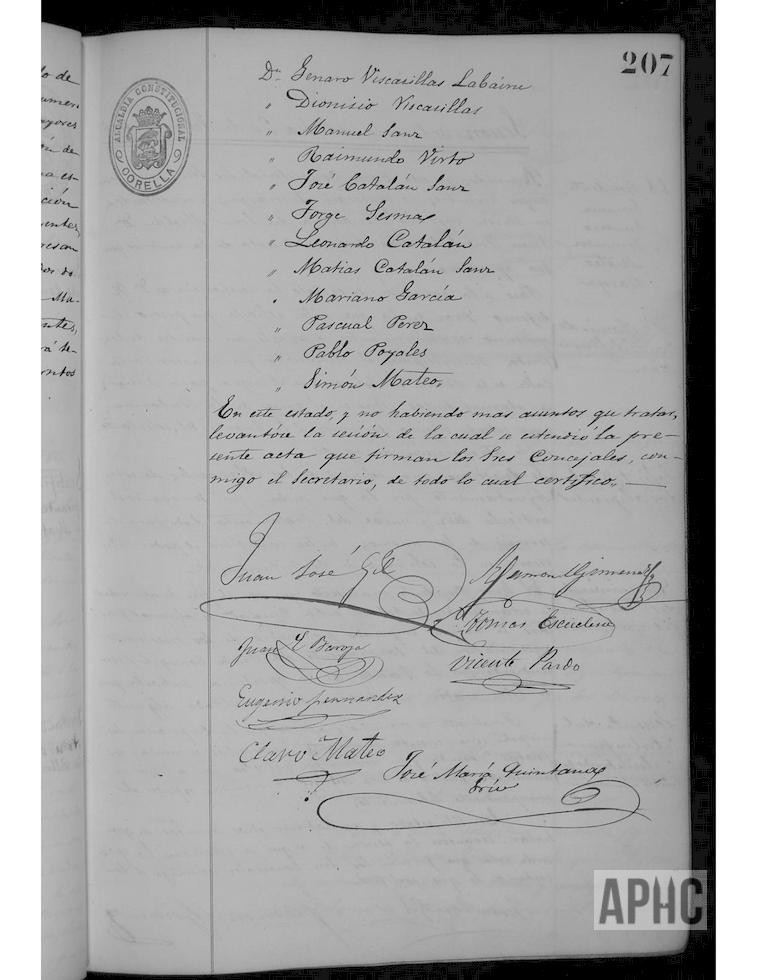 207
ALCALDIA CONSTITUCIONAL
CORELLA
lo de
yores
ón de
a es-
ción
entes
resan
os de
Ma-
ntes,
rá se-
ntos
Dn Genaro Viscasillas Labáinu
" Dionisio Viscasillas
" Manuel Sanz
" Raimundo Virto
" José Catalán Sanz
" Jorge Sesma
" Leonardo Catalán
" Matias Catalán Sanz
" Mariano García
" Pascual Perez
" Pablo Poyales
" Simón Mateo.
En este estado, y no habiendo mas asuntos que tratar,
levantóse la sesión de la cual se estendió la pre-
sente acta que firman los Sres Concejales, con-
migo el Secretario, de todo lo cual certifico. —
Juan José Gil
Ramon Gimenez
Tomas Escudero
Juan L Baroja
Vicente Pardo
Eugenio Fernandez
Claro Mateo
José María Quintana
Srio
APHC